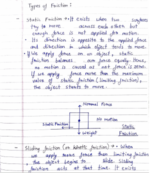 Types of Friction :
Static Friction :- It exists when two bodies
try to move across each other but
enough force is not applied for motion.
Its direction is opposite to the applied force
and direction in which object tends to move.
If we apply force on an object, static
friction balances. Now force equally. Hence,
no motion is caused as net force is zero.
If we apply force more than the maximum
value of static friction (limiting friction),
the object starts to move.
Normal Force
Static Friction
All motion
weight
Static
Friction
Sliding friction (or kinetic friction) :- When
we apply more force than limiting friction
the object begins to slide. Sliding
friction acts at that time. It exists